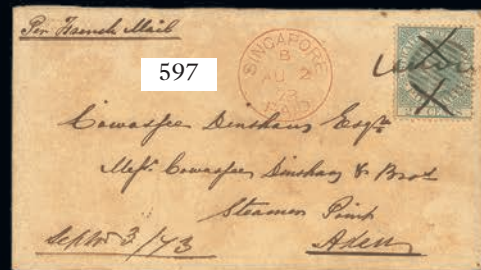 Per French Mail
597
SINGAPORE
B
AU 2
73
PAID
Cowasjee Dinshaw Esqre
Messrs Cowasjee Dinshaw & Bros
Steamer Point
Aden
Septbr 3/73